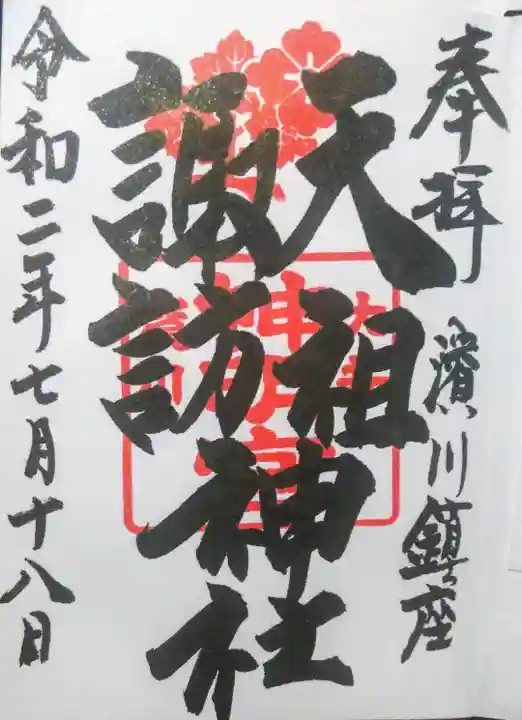 奉拝 濱川鎮座
天祖神社
諏訪神社
令和二年七月十八日
神明宮